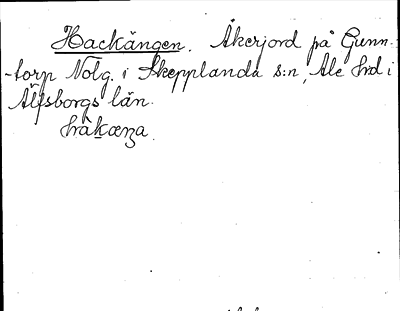 Hackängen. Åkerjord på Gunn-
-torp Nolg. i Skepplanda s:n, Ale hrd i
Älfsborgs län.